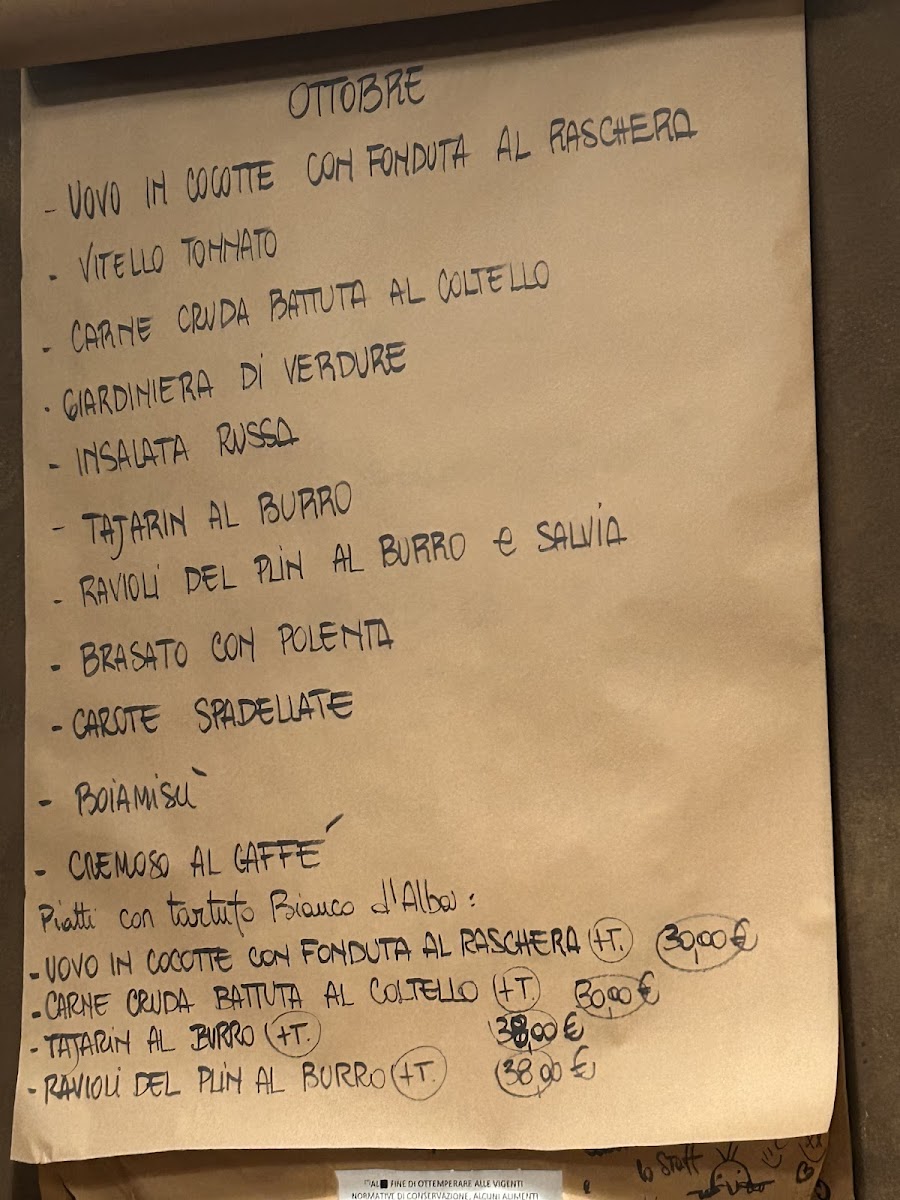 OTTOBRE
- UOVO IN COCOTTE CON FONDUTA AL RASCHERA
- VITELLO TONNATO
- CARNE CRUDA BATTUTA AL COLTELLO
- GIARDINIERA Di VERDURE
- INSALATA RUSSA
- TAJARIN AL BURRO
- RAVIOLi DEL PLiN AL BURRO e SALVIA
- BRASATO CON POLENTA
- CAROTE SPADELLATE
- BOiAMiSÙ
- CREMOSO AL CAFFÉ
Piatti con tartufo Bianco d'Alba:
- UOVO IN COCOTTE CON FONDUTA AL RASCHERA (+T.) 30,00 €
- CARNE CRUDA BATTUTA AL COLTELLO (+T.) 30,00 €
- TAJARIN AL BURRO (+T.) 38,00 €
- RAVIOLi DEL PLiN AL BURRO (+T.) 38,00 €
lo Staff
FINE DI OTTEMPERARE ALLE VIGENTI
NORMATIVE DI CONSERVAZIONE, ALCUNI ALIMENTI